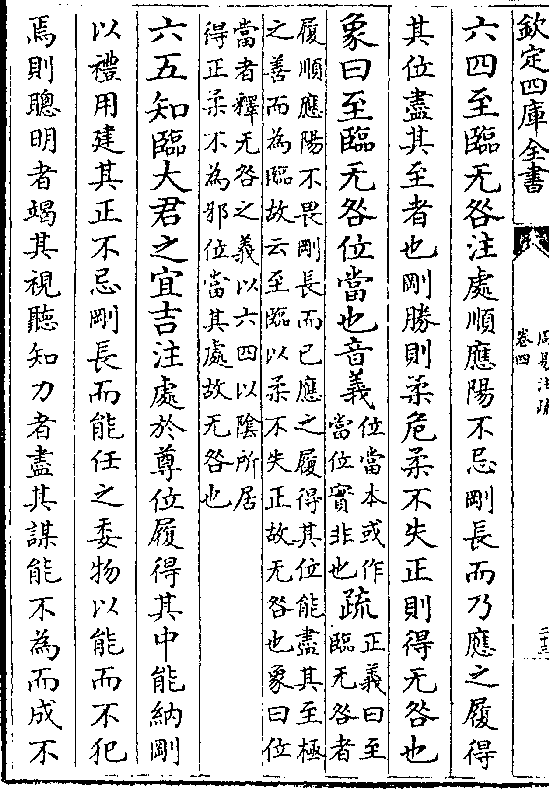 欽定四庫全書
周易注疏
卷四
六四至臨无咎注處順應陽不忌剛長而乃應之履得
其位盡其至者也剛勝則柔危柔不失正則得无咎也
象曰至臨无咎位當也音義
位當本或作
當位實非也
疏
正義曰至
臨无咎者
履順應陽不畏剛長而已應之履得其位能盡其至極
之善而為臨故云至臨以柔不失正故无咎也象曰位
當者釋无咎之義以六四以陰所居
得正柔不為邪位當其處故无咎也
六五知臨大君之宜吉注處於尊位履得其中能納剛
以禮用建其正不忌剛長而能任之委物以能而不犯
焉則聰明者竭其視聽知力者盡其謀能不為而成不